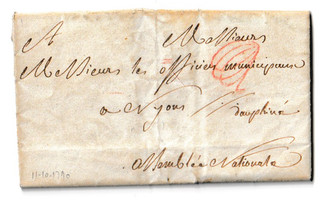 A Messieurs
Messieurs les officiers municipaux
a Nyons dauphiné
assemblée Nationale
11-10-1790